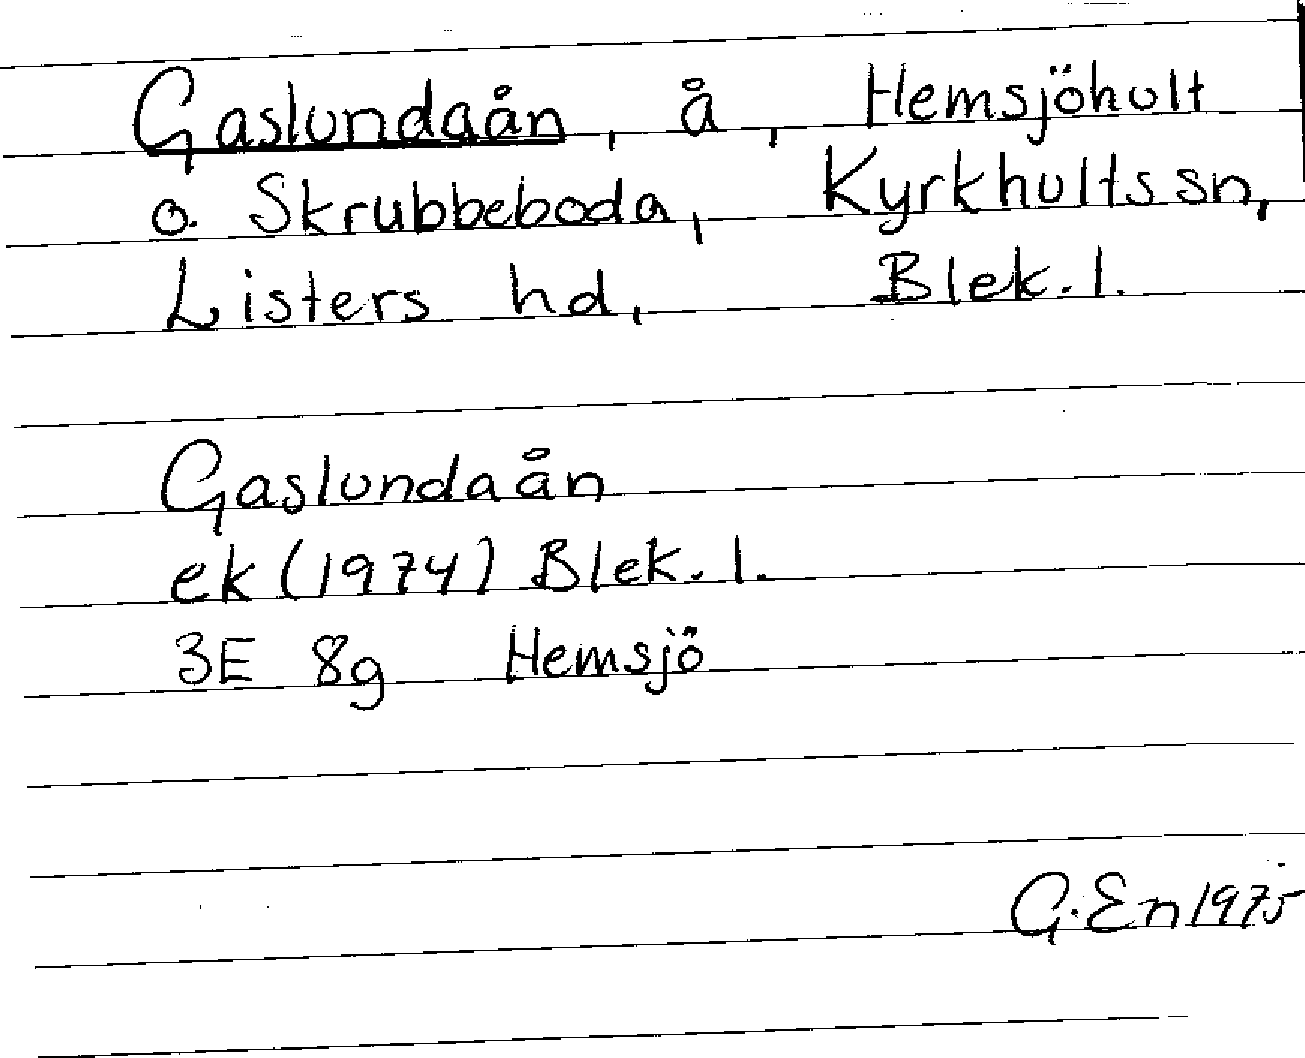 Gaslundaån, å, Hemsjöholt
o. Skrubbeboda, Kyrkhults sn,
Listers hd, Blek. l.
Gaslundaån
ek (1974) Blek. l.
3E 8g Hemsjö
G. En 1975